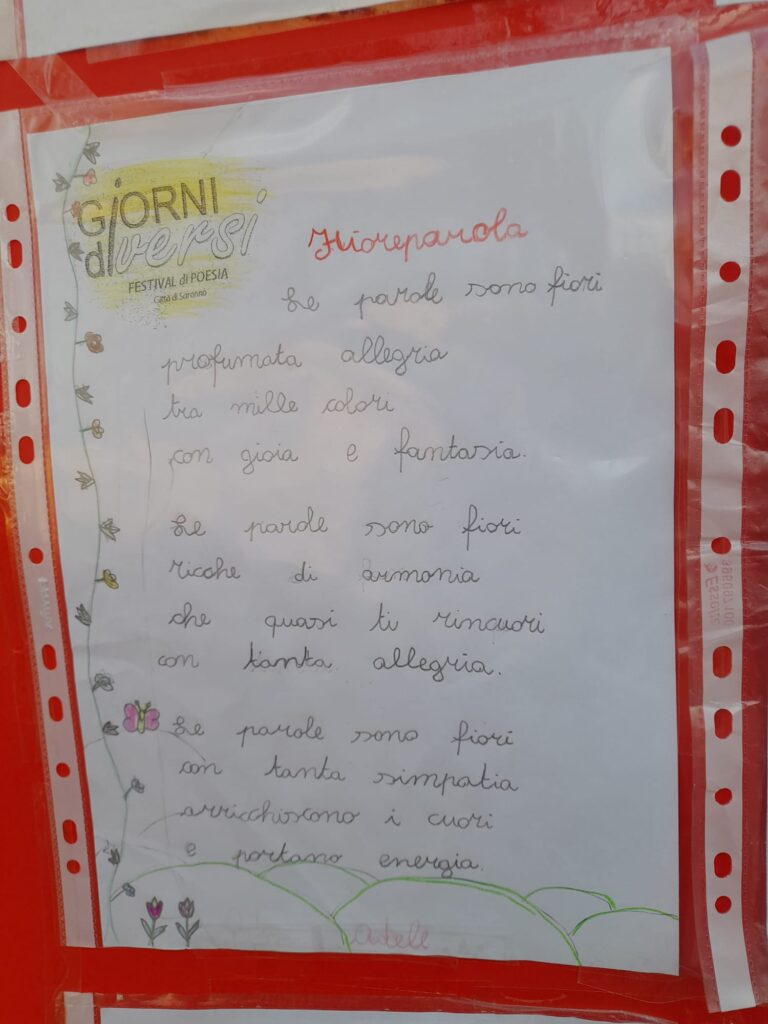 GiORNI
diversi
FESTIVAL di POESIA
Città di Saronno
Fioreparola
Le parole sono fiori
profumata allegria
tra mille colori
con gioia e fantasia.
Le parole sono fiori
ricche di armonia
che quasi ti rincuori
con tanta allegria.
Le parole sono fiori
con tanta simpatia
arricchiscono i cuori
e portano energia.